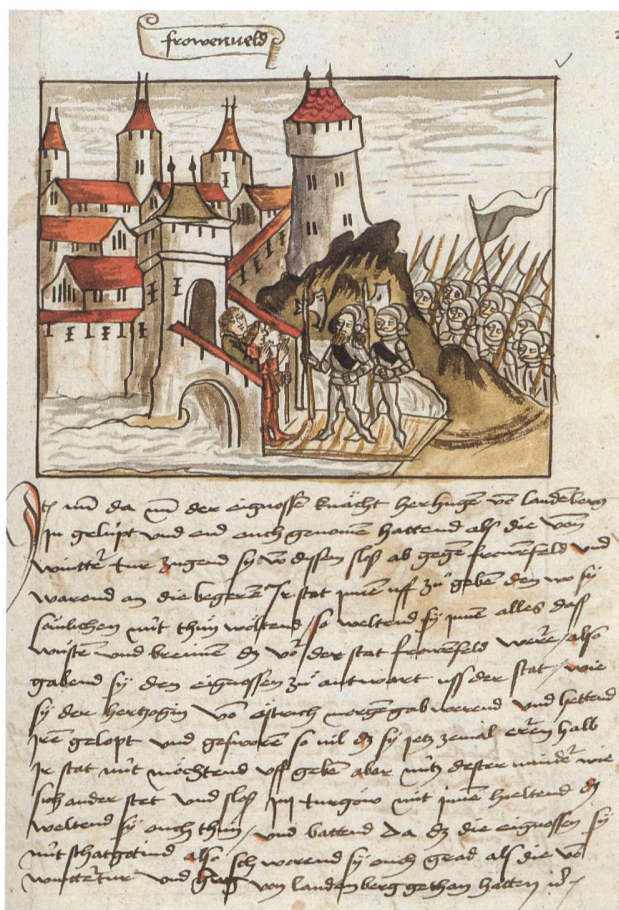 frowenveld
Jtem und da nun der eignossen knächt her hugen von landenberg
in gelüpt und eid auch genomen hattend als die von
wintter tur zugend sy von dissen slos ab gegen frowenfeld und
warend an die begeren Ir stat inen uff zu geben den wo sy
sömlichen nüt thun wöltend / so weltend sy inen alles das
wüsten und brennen dz vor der stat frowenfeld were / also
gabend sy den eignossen zu antwort uss der stat / wie
sy der hertzogin von östrich morgengab werend und hettend
iren gelopt und gesworen so vil dz sy jetz zemal eren halb
Ir stat nüt möchtend uff geben aber nütz dester minder wie
sich ander stet und slos im turgöw mit inen hieltend dz
weltend sy ouch thun / und battend da dz die eignossen sy
nüt schatgotind also schworend sy ouch grad als die von
wintterttur und hug von landenberg gethan hatten